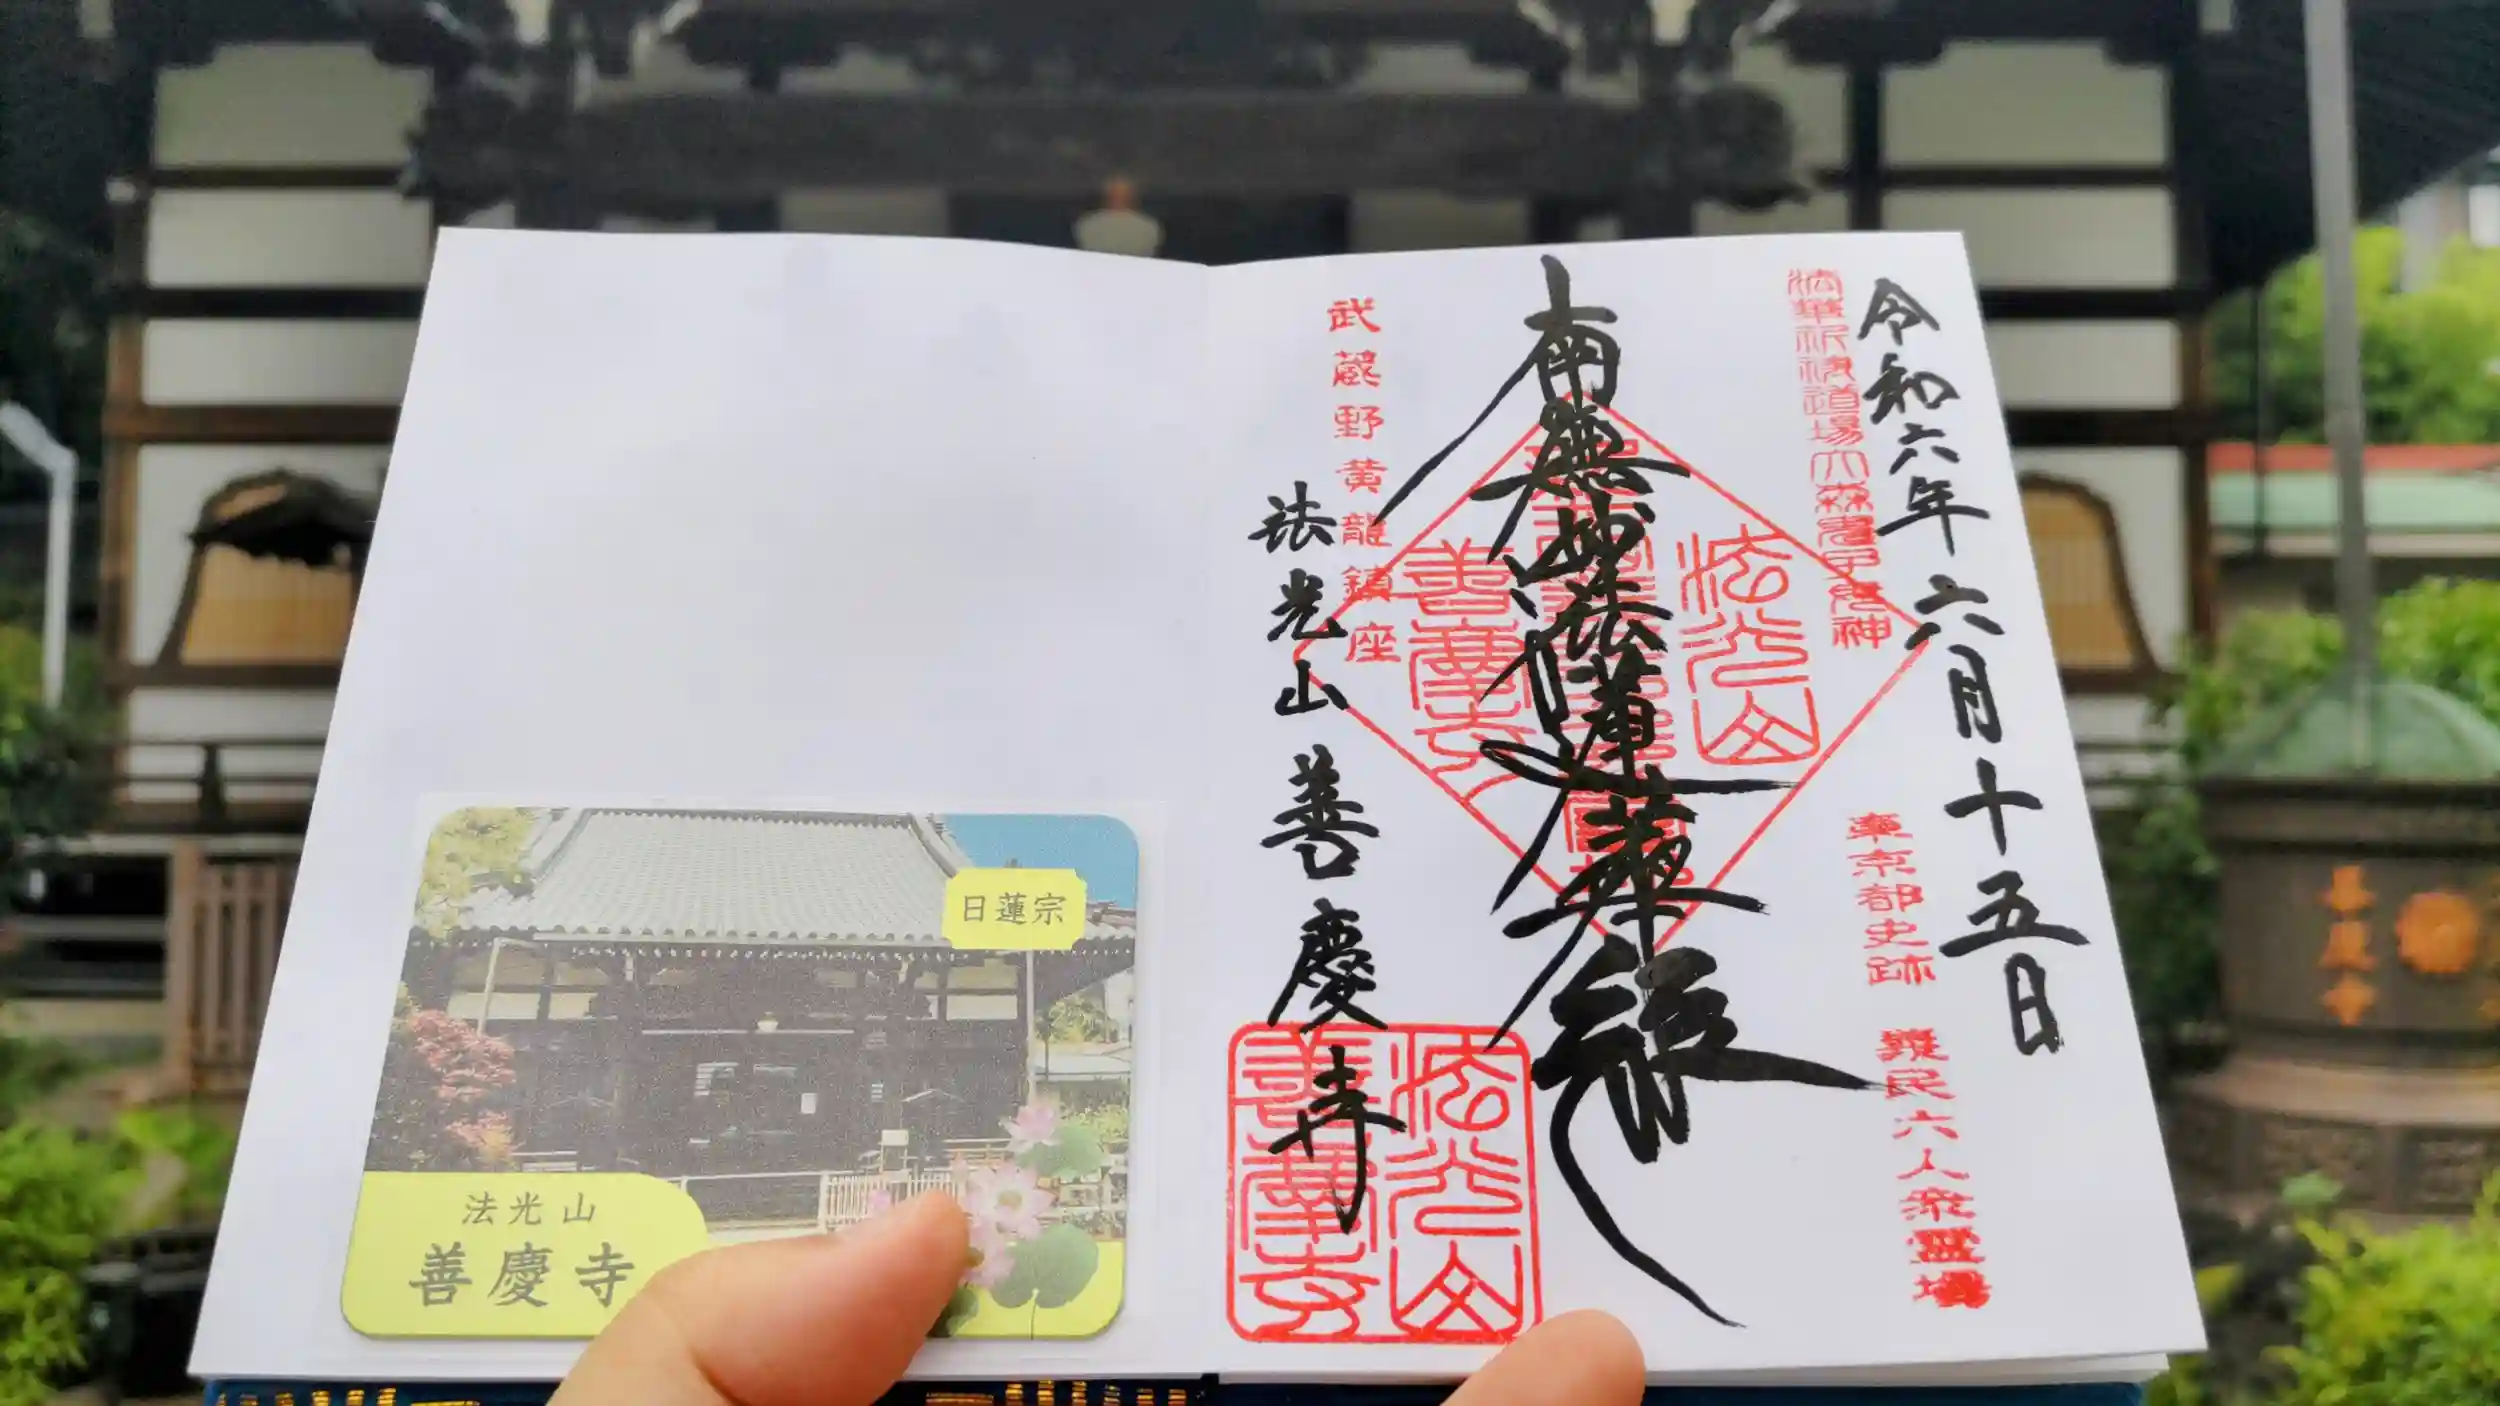 令和六年六月十五日
東京都史跡 義民六人衆霊場
南無妙法蓮華経
法光山
善慶寺
武蔵野黄龍鎮座
法光山 善慶寺
法光山
善慶寺
日蓮宗
法光山
善慶寺
善慶寺